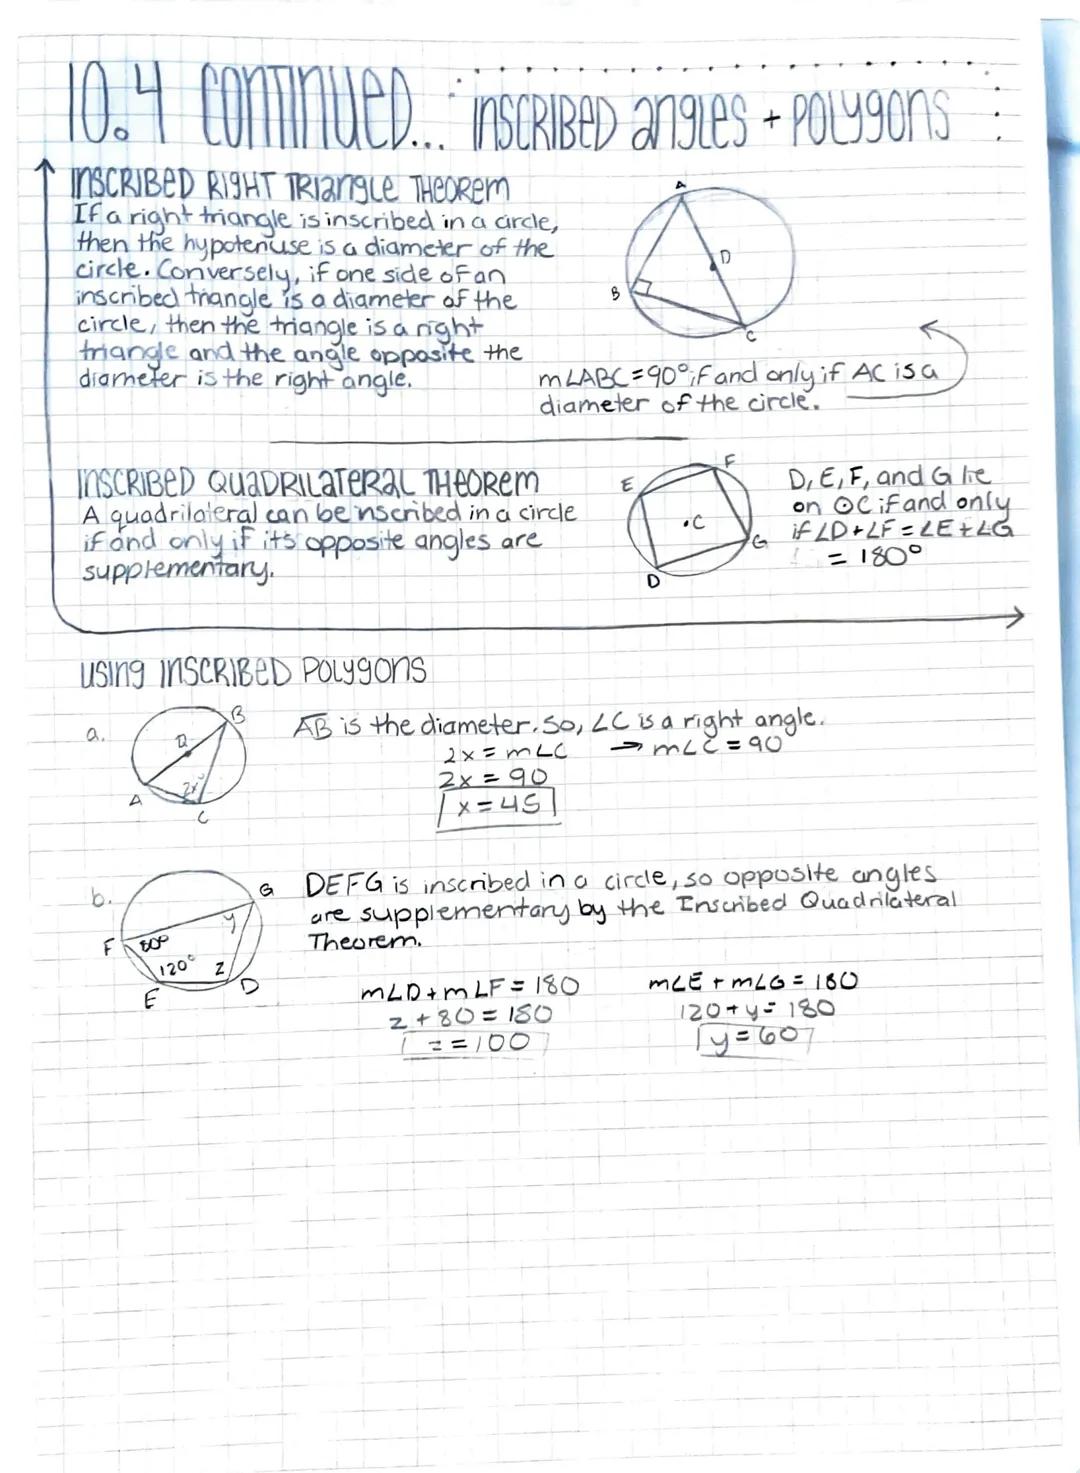 10.4 CONTINUED... INSCRIBED ANGLES + POLYGONS
INSCRIBED RIGHT TRIANGLE THEOREM
If a right triangle is inscribed in a circle,
then the hypotenuse is a diameter of the
circle. Conversely, if one side of an
inscribed triangle is a diameter of the
circle, then the triangle is a right
triangle and the angle opposite the
diameter is the right angle.
A
D
B
C
m∠ABC=90° if and only if AC is a
diameter of the circle.
INSCRIBED QUADRILATERAL THEOREM
A quadrilateral can be inscribed in a circle
if and only if its opposite angles are
supplementary.
F
E
•C
G
D
D, E, F, and G lie
on ⊙C if and only
if ∠D+∠F=∠E+∠G
= 180°
USING INSCRIBED POLYGONS
a.
B
Q
2x°
A
C
AB is the diameter. So, ∠C is a right angle.
2x = m∠C → m∠C = 90
2x = 90
x = 45
b.
G
y
F
80°
120°
z
E
D
DEFG is inscribed in a circle, so opposite angles
are supplementary by the Inscribed Quadrilateral
Theorem.
m∠D + m∠F = 180
z + 80 = 180
z = 100
m∠E + m∠G = 180
120 + y = 180
y = 60